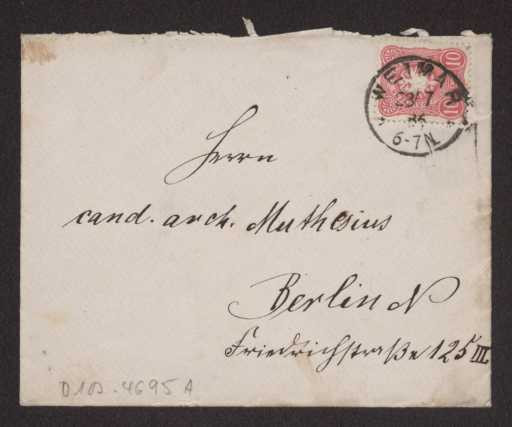 10
10
WEIMAR
23/7
86
6-7N.
Herrn
cand. arch. Muthesius
Berlin N
Friedrichstraße 125 III.
D 103-4695 A